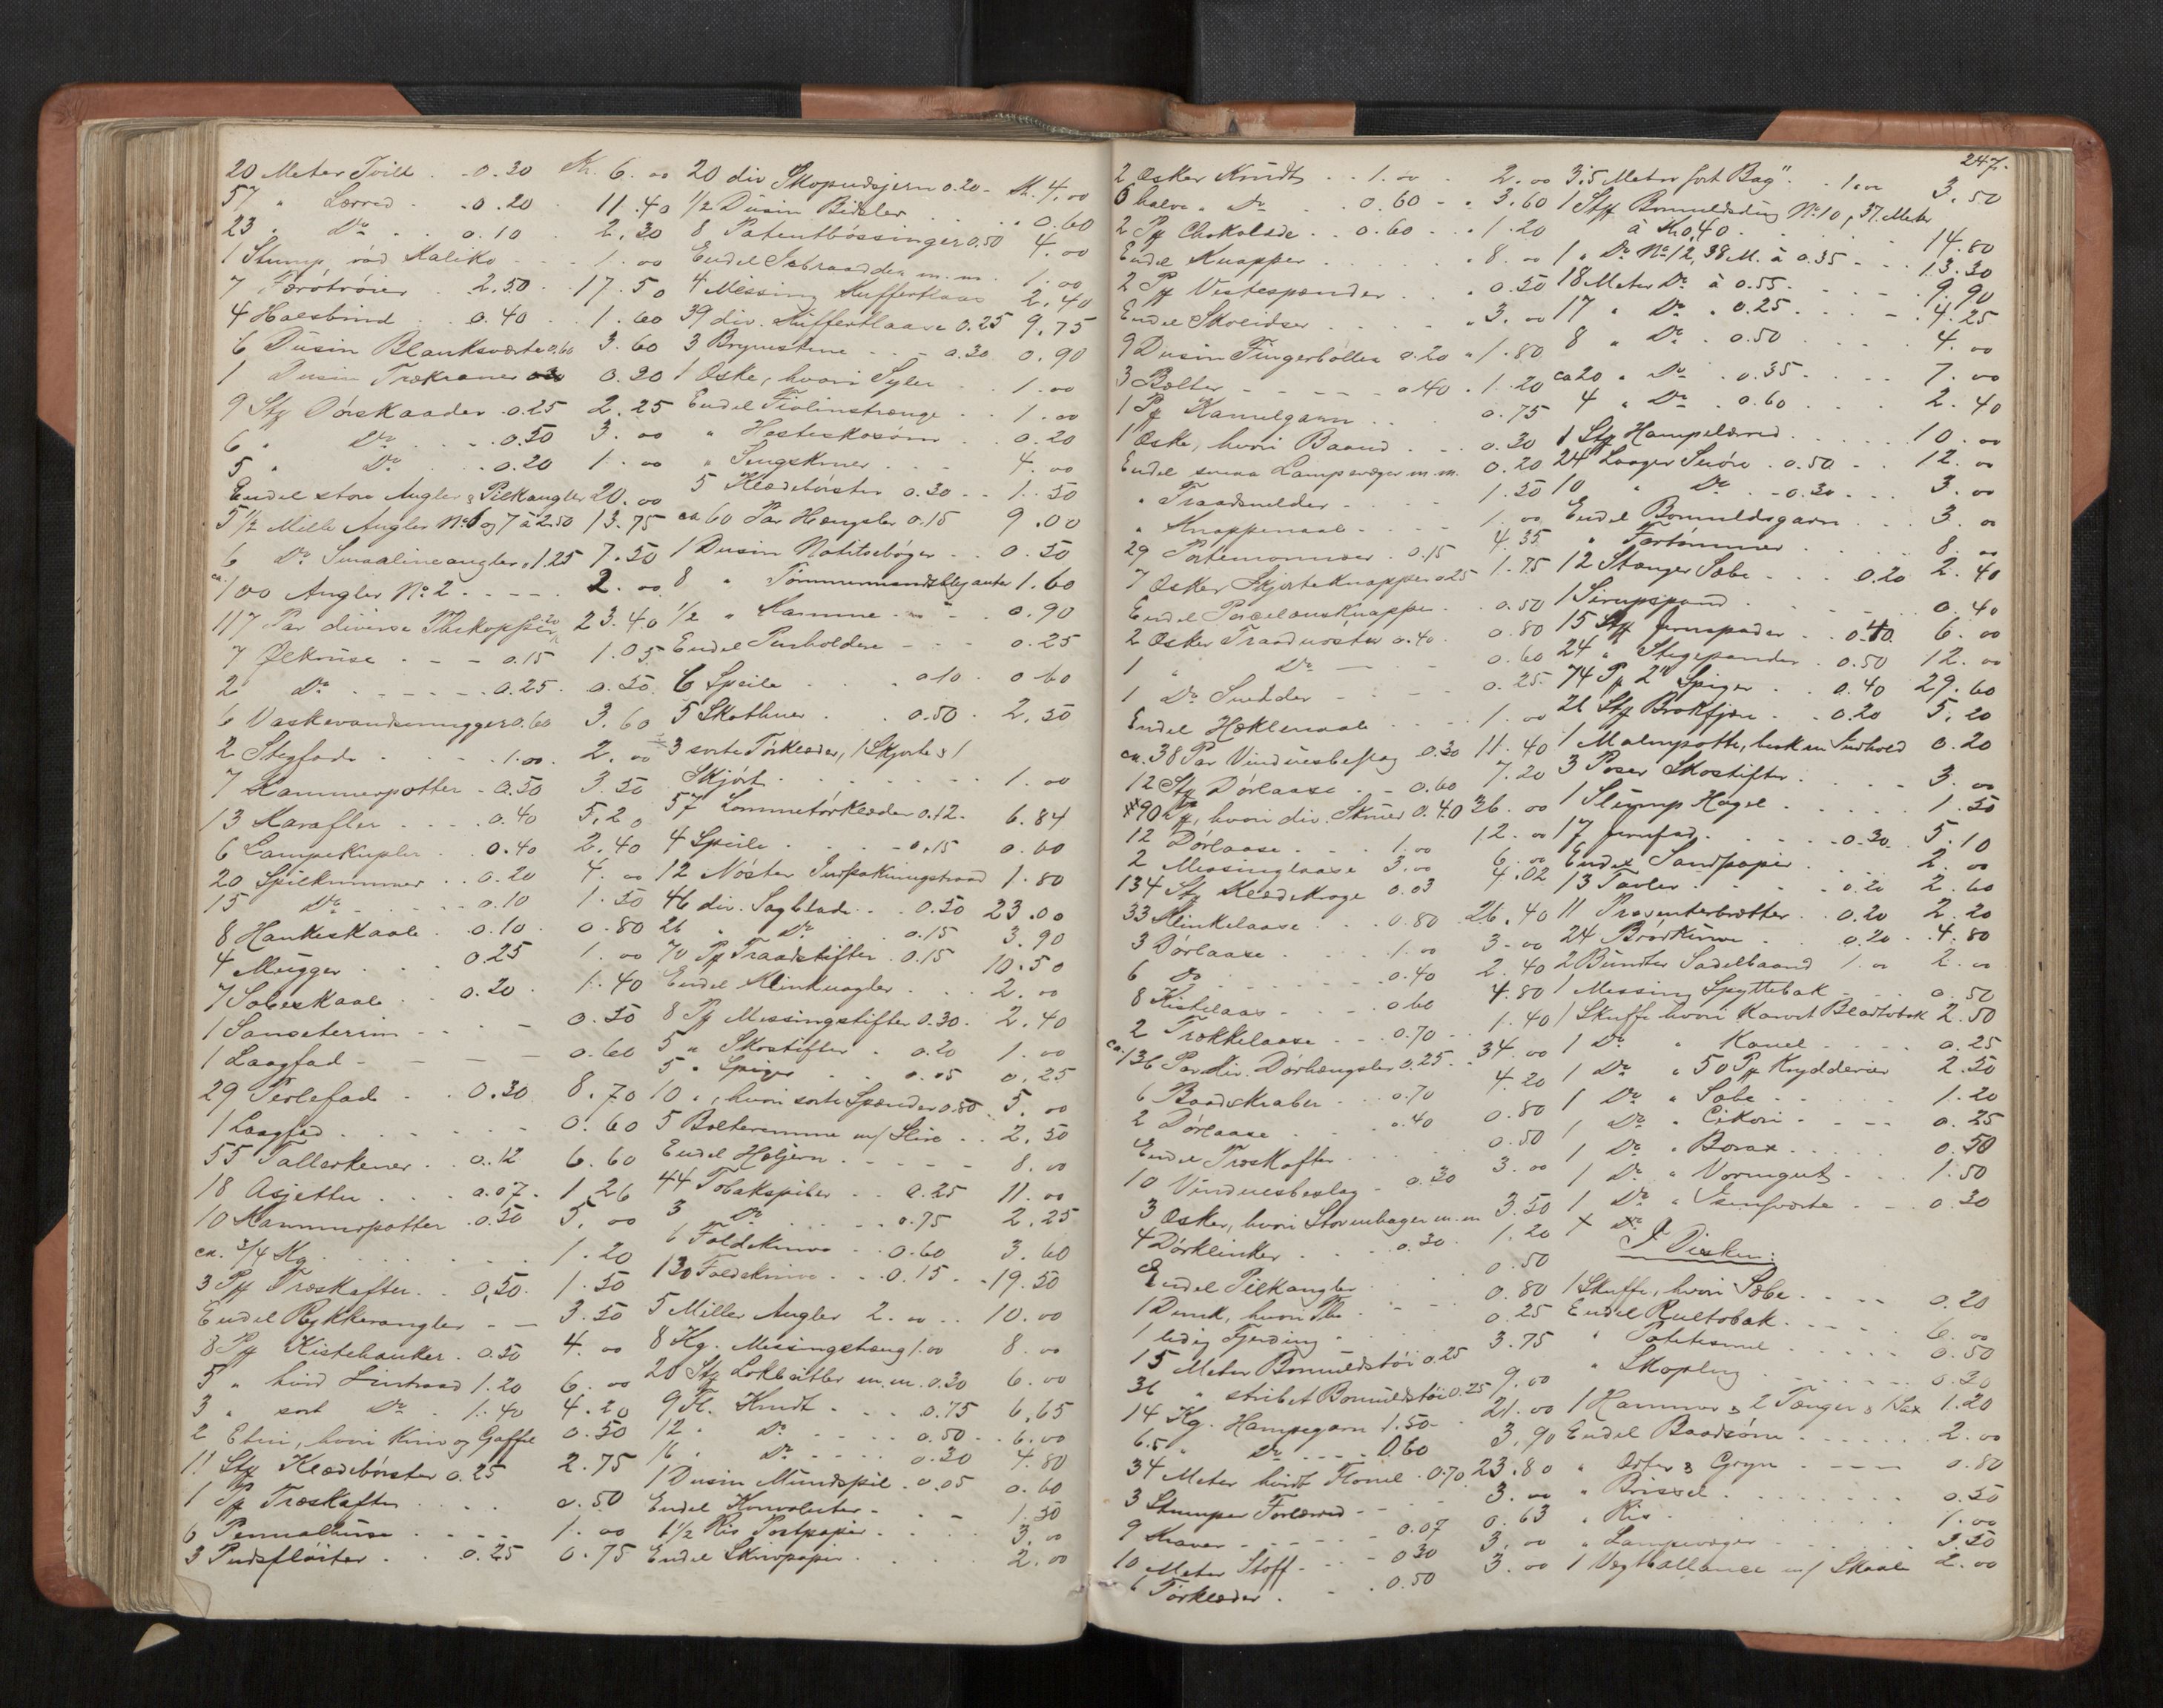 20 Meter Tvill . . 0.30 Kr. 6.00
57 " Lærred . . 0.20 11.40
23 " Do . . 0.10 2.30
1 Stump rød Kaliko . . . 1.00
7 Færøtrøier . 2.50 . 17.50
4 Halsbind . . 0.40 . 1.60
6 Dusin Blanksværte 0.60 3.60
1 Dusin Trækraner 0.20
9 Stk Dørskaader . 0.25 2.25
6 " Do . . . 0.50 3.00
5 " Do . . . 0.20 1.00
Endel store Angler & Pilkangler 20.00
5 1/2 Mille Angler No 6 og 7 à 2.50 13.75
6 Do Smaalineangler " 1.25 7.50
ca. 100 Angler No 2 . . . . 2.00
117 Par diverse Thekopper 20 23.40
7 Ølkruse . . . 0.15 1.05
2 Do . . . . . 0.25 . 0.50
6 Vaskevandsmugger 0.60 3.60
2 Stegfade . . . 1.00 . 2.00
7 Kammerpotter . 0.50 3.50
13 Karafler . . . 0.40 5.20
6 Lampekupler . . 0.40 2.40
20 Spilkummer . . 0.20 4.00
15 Do . . . . 0.10 1.50
8 Hankeskaale . 0.10 . 0.80
4 Mugger . . . 0.25 1.00
7 Sobeskaale . . 0.20 . 1.40
1 Sauseterrin . . . . 0.50
1 Laagfad . . . . 0.60
29 Perlefade . . 0.30 8.70
1 Laagfad . . . . . . 0.60
55 Tallerkener . . 0.12 6.60
18 Asjetter . . . 0.07 . 1.26
10 Kammerpotter . 0.50 5.00
ca. 3/4 Kg . . . . . 1.20
3 Pk Træskafter . . 0.50 . 1.50
Endel Rykkerangler . . 3.50
8 Pk Kistehanker . 0.50 4.00
5 " hvid Lintraad 1.20 6.00
3 " sort Do . 1.40 4.20
2 Etui, hvori Kniv og Gaffel 0.50
11 Stk Klædebørster 0.25 2.75
1 Pk Træskafter . . . . 0.50
6 Pennalhuse . . . . 1.00
3 Pudsfløiter . . 0.25 0.75
20 div Skopudsjern 0.20 . Kr. 4.00
1/2 Dusin Bidsler . . . . " 0.60
8 Patentbøssinger 0.50 4.00
Endel m. m. 1.00
4 Messing Kuffertlaase 2.40
39 div. Kuffertlaase 0.25 9.75
3 Brynestene . . . 0.30 0.90
1 Æske, hvori Syler . . 1.00
Endel Fiolinstrænge . . 1.00
" Hesteskosøm . . 0.20
" Sengskruer . . . 4.00
5 Klædebørster 0.30 . . 1.50
ca. 60 Par Hængsler 0.15 9.00
1 Dusin Notitsebøger . . 0.50
8 " Tømmermandsblyanter 1.60
1/2 " Kamme . . . . 0.90
Endel Penholdere . . . 0.25
6 Speile . . . 0.10 . 0.60
5 Skothuer . . 0.50 . 2.50
3 sorte Tørklæder, 1 Skjorte & 1
Skjørt . . . . . . . 1.00
57 Lommetørklæder 0.12 . 6.84
4 Speile . . . . 0.15 0.60
12 Nøster Indpakningstraad 1.80
46 div. Sagblade . . 0.50 23.00
26 " Do . . 0.15 3.90
70 Pk Traadstifter . 0.15 10.50
Endel Klinknagler . . . 2.00
8 Pk Messingstifter 0.30 . 2.40
5 " Skostifter . 0.20 1.00
5 " Spiger . . 0.05 0.25
10 ", hvori sorte Spænder 0.50 . 5.00
5 Belteremme m/ Slire . . 2.50
Endel Høljern . . . . . 8.00
44 Tobakspiber . . 0.25 11.00
3 Do . . . . . 0.75 2.25
6 Foldeknive . . 0.60 3.60
130 Foldeknive . . . 0.15 . . 19.50
5 Miller Angler 2.00 . . 10.00
8 Kg. Messingstang 1.00 8.00
20 Stk m. m. 0.30 6.00
9 Fl. Krudt . . . 0.75 6.65
12 " Do . . . . 0.50 . . 6.00
16 " Do . . . . 0.30 4.80
1 Dusin Mundspil . 0.05 0.60
Endel Konvolutter . . . 1.50
1 1/2 Ris Postpapir . . . . 3.00
Endel Skrivpapir . . . . 2.00
247.
2 Æsker Krudt . . 1.00 . 2.00
6 halve " Do . . 0.60 . " 3.60
2 Pk Chokolade . . 0.60 . . " 1.20
Endel Knapper . . . . . " 8.00
2 Pk Vestespænder . . . " 0.50
Endel . . . . . " 3.00
9 Dusin Fingerbøller 0.20 " 1.80
3 Belter . . . . . 0.40 . 1.20
1 Pk Kamelgarn . . . 0.75
1 Æske, hvori Baand . . . 0.30
Endel smaa Lampevæger m. m. 0.20
" Traadsnelder . . . . 1.50
" Knappenaale . . . . 1.00
29 Portemonnæer . 0.15 4.35
7 Æsker Skjorteknapper 0.25 1.75
Endel Porcelænsknapper . . 0.50
2 Æsker Traadnøster 0.40 . 0.80
1 " Do . . . 0.60
1 Do . . . . 0.25
Endel Hæklenaale . . . . 1.00
ca. 38 Par Vinduesbeslag 0.30 11.40
12 Stk Dørlaase . . 0.60 7.20
90 Pk, hvori div. Skruer 0.40 36.00
12 Dørlaase . . . 1.00 12.00
2 Messinglaase 3.00 6.00
134 Stk Klædekroge 0.03 4.02
33 Klinkelaase . . . 0.80 26.40
3 Dørlaase . . . 1.00 3.00
6 Do . . . . . 0.40 2.40
8 Kistelaas . . . 0.60 4.80
2 Trekkelaase . . . 0.70 . . 1.40
ca. 136 Par div. Dørhængsler 0.25 . . 34.00
6 Baadskraber . . . 0.70 4.20
2 Dørlaase . . . 0.40 0.80
Endel Træskafter . . . . . 0.50
10 Vinduesbeslag . 0.30 3.00
3 Æsker, hvori m. m 3.50
4 Dørklinker . . . . 0.30 . 1.20
Endel Pilkangler . . . . 0.50
1 Dunk, hvori The . . . . 0.80
1 ledig Fjerding . . . . 0.25
15 Meter Bomuldstøi 0.25 3.75
36 " stribet Bomuldstøi 0.25 9.00
14 Kg. Hampegarn 1.50 . . 21.00
6.5 " Do . . . . 0.60 3.90
34 Meter hvidt Flonel . 0.70 23.80
3 Stumper Forlærred . . . 3.00
9 Kraver . . . . . 0.07 0.63
10 Meter Stoff . . . . 0.30 3.00
6 Tørklæder . . . . 0.50 3.00
3.5 Meter sort " . . 1.00 3.50
1 Stk Bomuldsdug No 10, 37 Meter
à Kr 0.40 . . . . . 14.80
1 " Do No 12, 38 M. à 0.35 . . . 13.30
18 Meter Do à 0.55 . . . . . 9.90
17 " Do " 0.25 . . . . . 4.25
8 " Do . 0.50 . . . . 4.00
ca 20 " Do . 0.35 . . . . 7.00
4 " Do . 0.60 . . . . 2.40
1 Stk Hampelærred . . . . . 10.00
24 Laager Snøre . 0.50 . . 12.00
10 " Do . . 0.30 . . . 3.00
Endel Bomuldsgarn . . . 3.00
" Fortømmer . . . . 8.00
12 Stænger Sæbe . . . 0.20 2.40
1 Sirupspand . . . . . 0.40
15 Stk Jernspader . . 0.40 6.00
24 " Stegepander . 0.50 12.00
74 Pk 2" Spiger . . 0.40 29.60
26 Stk . . 0.20 5.20
1 Malmpotte, Indhold 0.20
3 Poser Skostifter . . . . 3.00
1 Slump Hagel . . . . . 1.50
17 Jernfad . . . . . 0.30 . 5.10
Endel Sandpapir . . . . 2.00
13 Tavler . . . . . 0.20 2.60
11 . 0.20 2.20
24 Brødknive . . . . 0.20 . . 4.80
2 Bundter Sadelbaand 1.00 2.00
1 Messing Spyttebak . . . 0.50
1 Skuffe hvori Karvet Bladtobak 2.50
1 Do " Kanel . . . . . 0.25
1 Do " 50 Pk Krydderier 2.50
1 Do " Sæbe . . . . . 1.20
1 Do " Cikori . . . . . 0.25
1 Do " Borax . . . . . 0.50
1 Do " Vorungut . . . 1.50
1 Do " . . . 0.30
Do
I Disken:
1 Skuffe, hvori Sæbe . . . . 0.20
Endel Rultobak . . . . . 6.00
" Potetesmel . . . . . 0.50
" Skopløg . . . . . . 0.20
1 Hammer & 2 Tænger & 1 Sax 1.20
Endel Baadsøm . . . . . . 2.00
" Erter & Gryn . . . . 0.80
" Brissel . . . . . . . 0.50
" Ris . . . . . . . . 1.00
" Lampevæger . . . . . 3.50
1 Vegtballance m/ Skaale 2.00